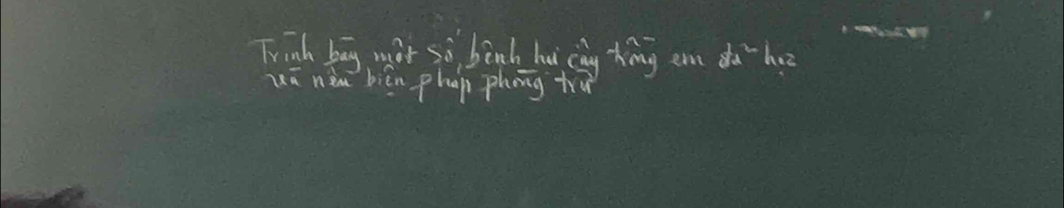 Trình bày một số bệnh hại cây trồng em đã học
và nêu biện pháp phòng trừ